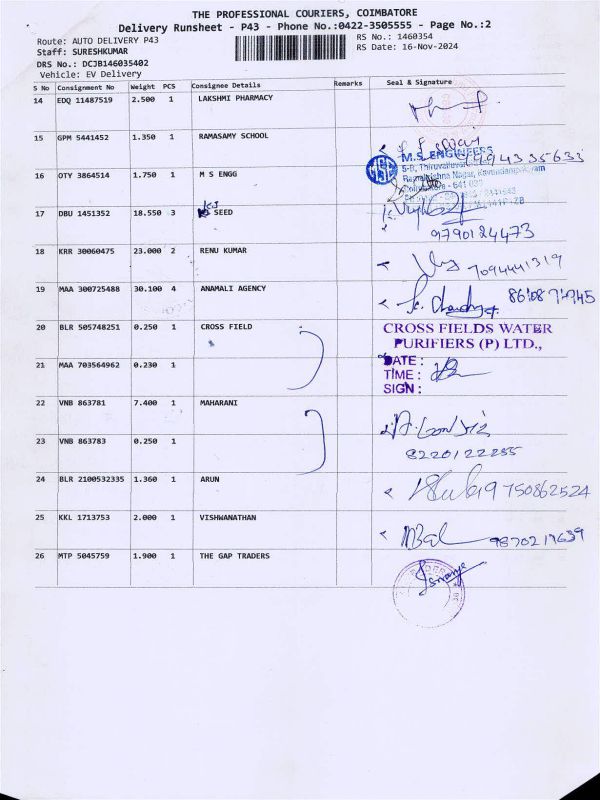 THE PROFESSIONAL COURIERS, COIMBATORE
Delivery Runsheet - P43 - Phone No.:0422-3505555 - Page No.:2
Route: AUTO DELIVERY P43
RS No.: 1460354
Staff: SURESHKUMAR
RS Date: 16-Nov-2024
DRS No.: DCJB146035402
Vehicle: EV Delivery
S No Consignment No Weight PCS Consignee Details Remarks Seal & Signature
14 EDQ 11487519 2.500 1 LAKSHMI PHARMACY
15 GPM 5441452 1.350 1 RAMASAMY SCHOOL
9994335633
16 OTY 3864514 1.750 1 M S ENGG
M.S. ENGINEERS
Coimbatore - 641
17 DBU 1451352 18.550 3 SEED
9790124473
18 KRR 30060475 23.000 2 RENU KUMAR
7094441319
19 MAA 300725488 30.100 4 ANAMALI AGENCY
20 BLR 505748251 0.250 1 CROSS FIELD
CROSS FIELDS WATER
PURIFIERS (P) LTD.,
21 MAA 703564962 0.230 1
DATE :
TIME :
SIGN :
22 VNB 863781 7.400 1 MAHARANI
23 VNB 863783 0.250 1
8220122255
24 BLR 2100532335 1.360 1 ARUN
9750862524
25 KKL 1713753 2.000 1 VISHWANATHAN
26 MTP 5045759 1.900 1 THE GAP TRADERS